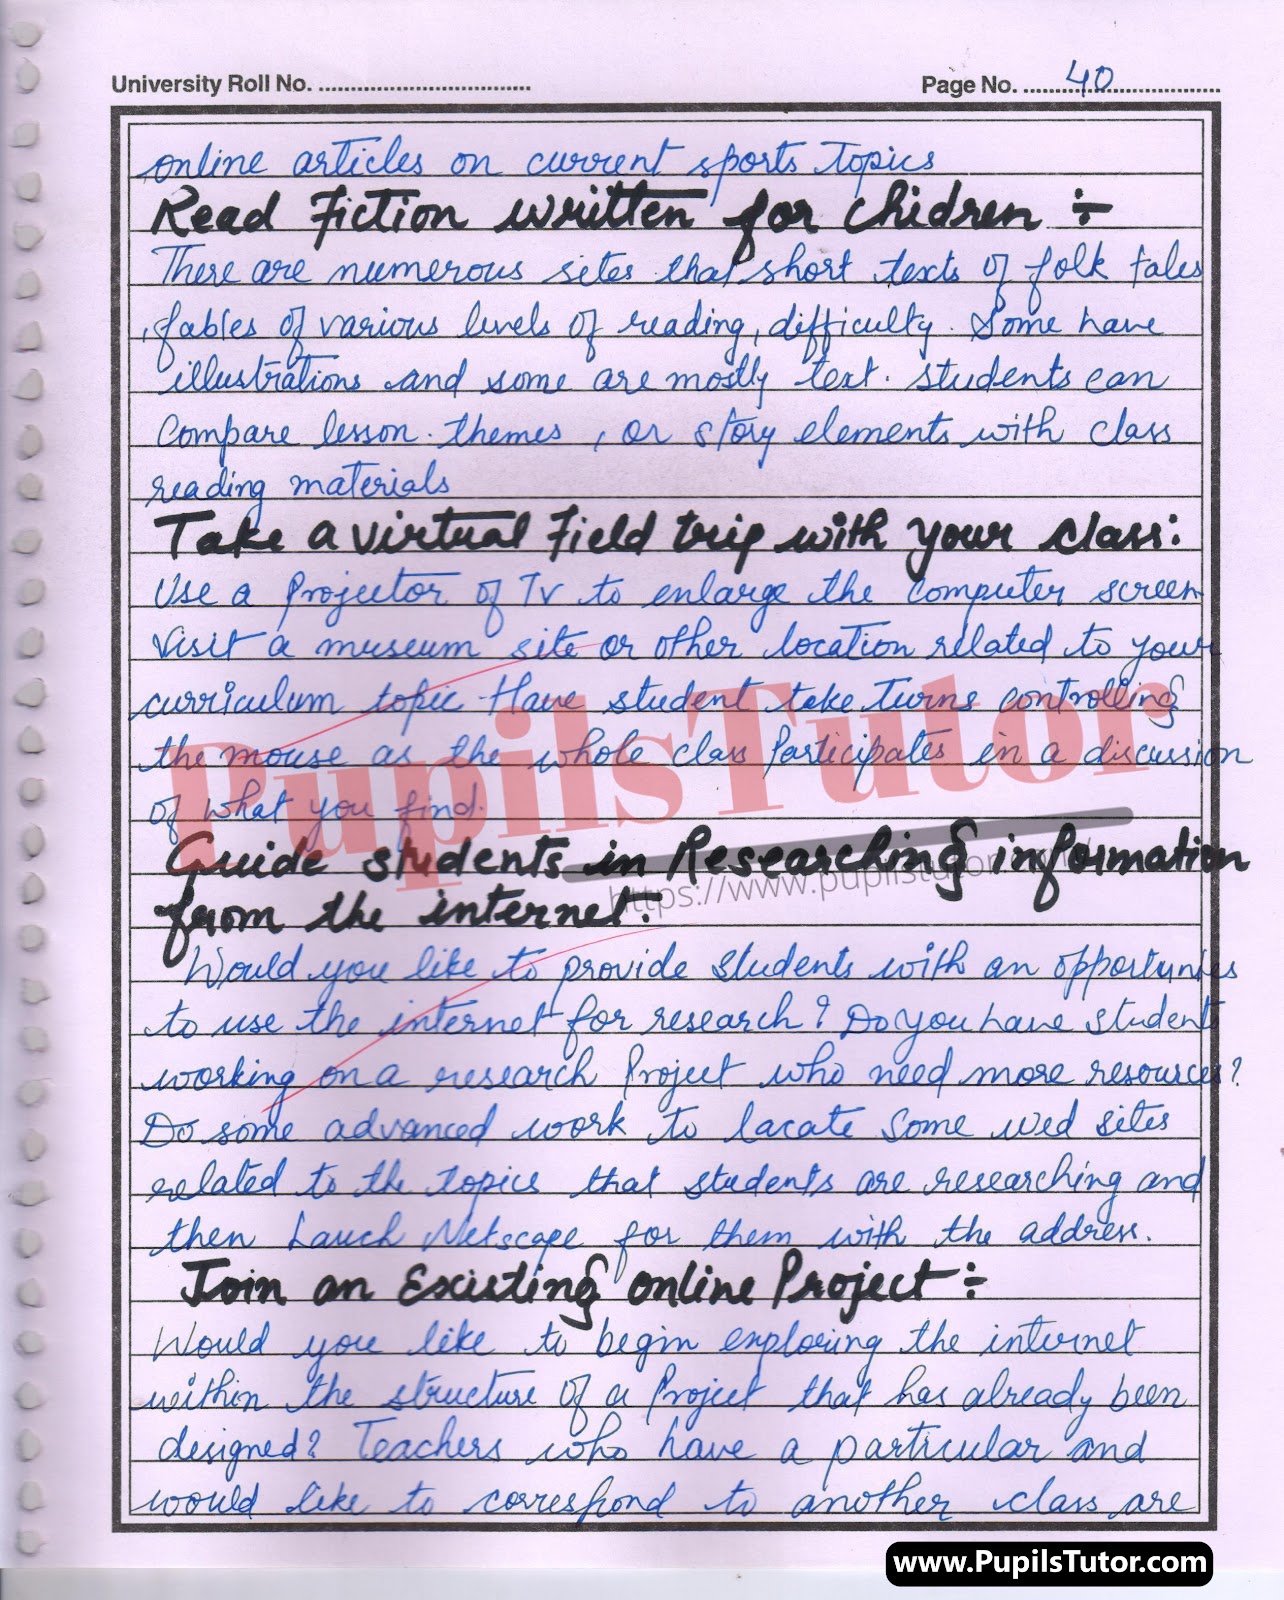 University Roll No. ................................. Page No. ......40..................
online articles on current sports topics
Read Fiction written for chidren ÷
There are numerous sites that short texts of folk tales
, fables of various levels of reading, difficulty. Some have
illustrations and some are mostly text. Students can
compare lesson. themes, or story elements with class
reading materials
Take a virtual Field trip with your class:
Use a Projector of TV to enlarge the computer screen
Visit a museum site or other location related to your
curriculum topic. Have student take turns controlling
the mouse as the whole class participates in a discussion
of what you find.
PupilsTutor
Guide students in Researching information
https://www.pupilstutor.com/
from the internet:
Would you like to provide students with an opportunies
to use the internet for research? Do you have student
working on a research Project who need more resources?
Do some advanced work to lacate Some wed sites
related to the topics that students are researching and
then Lauch Netscape for them with the address.
Join an Existing online Project ÷
Would you like to begin exploring the internet
within the structure of a Project that has already been
designed? Teachers who have a particular and
would like to correspond to another class are
www.PupilsTutor.com